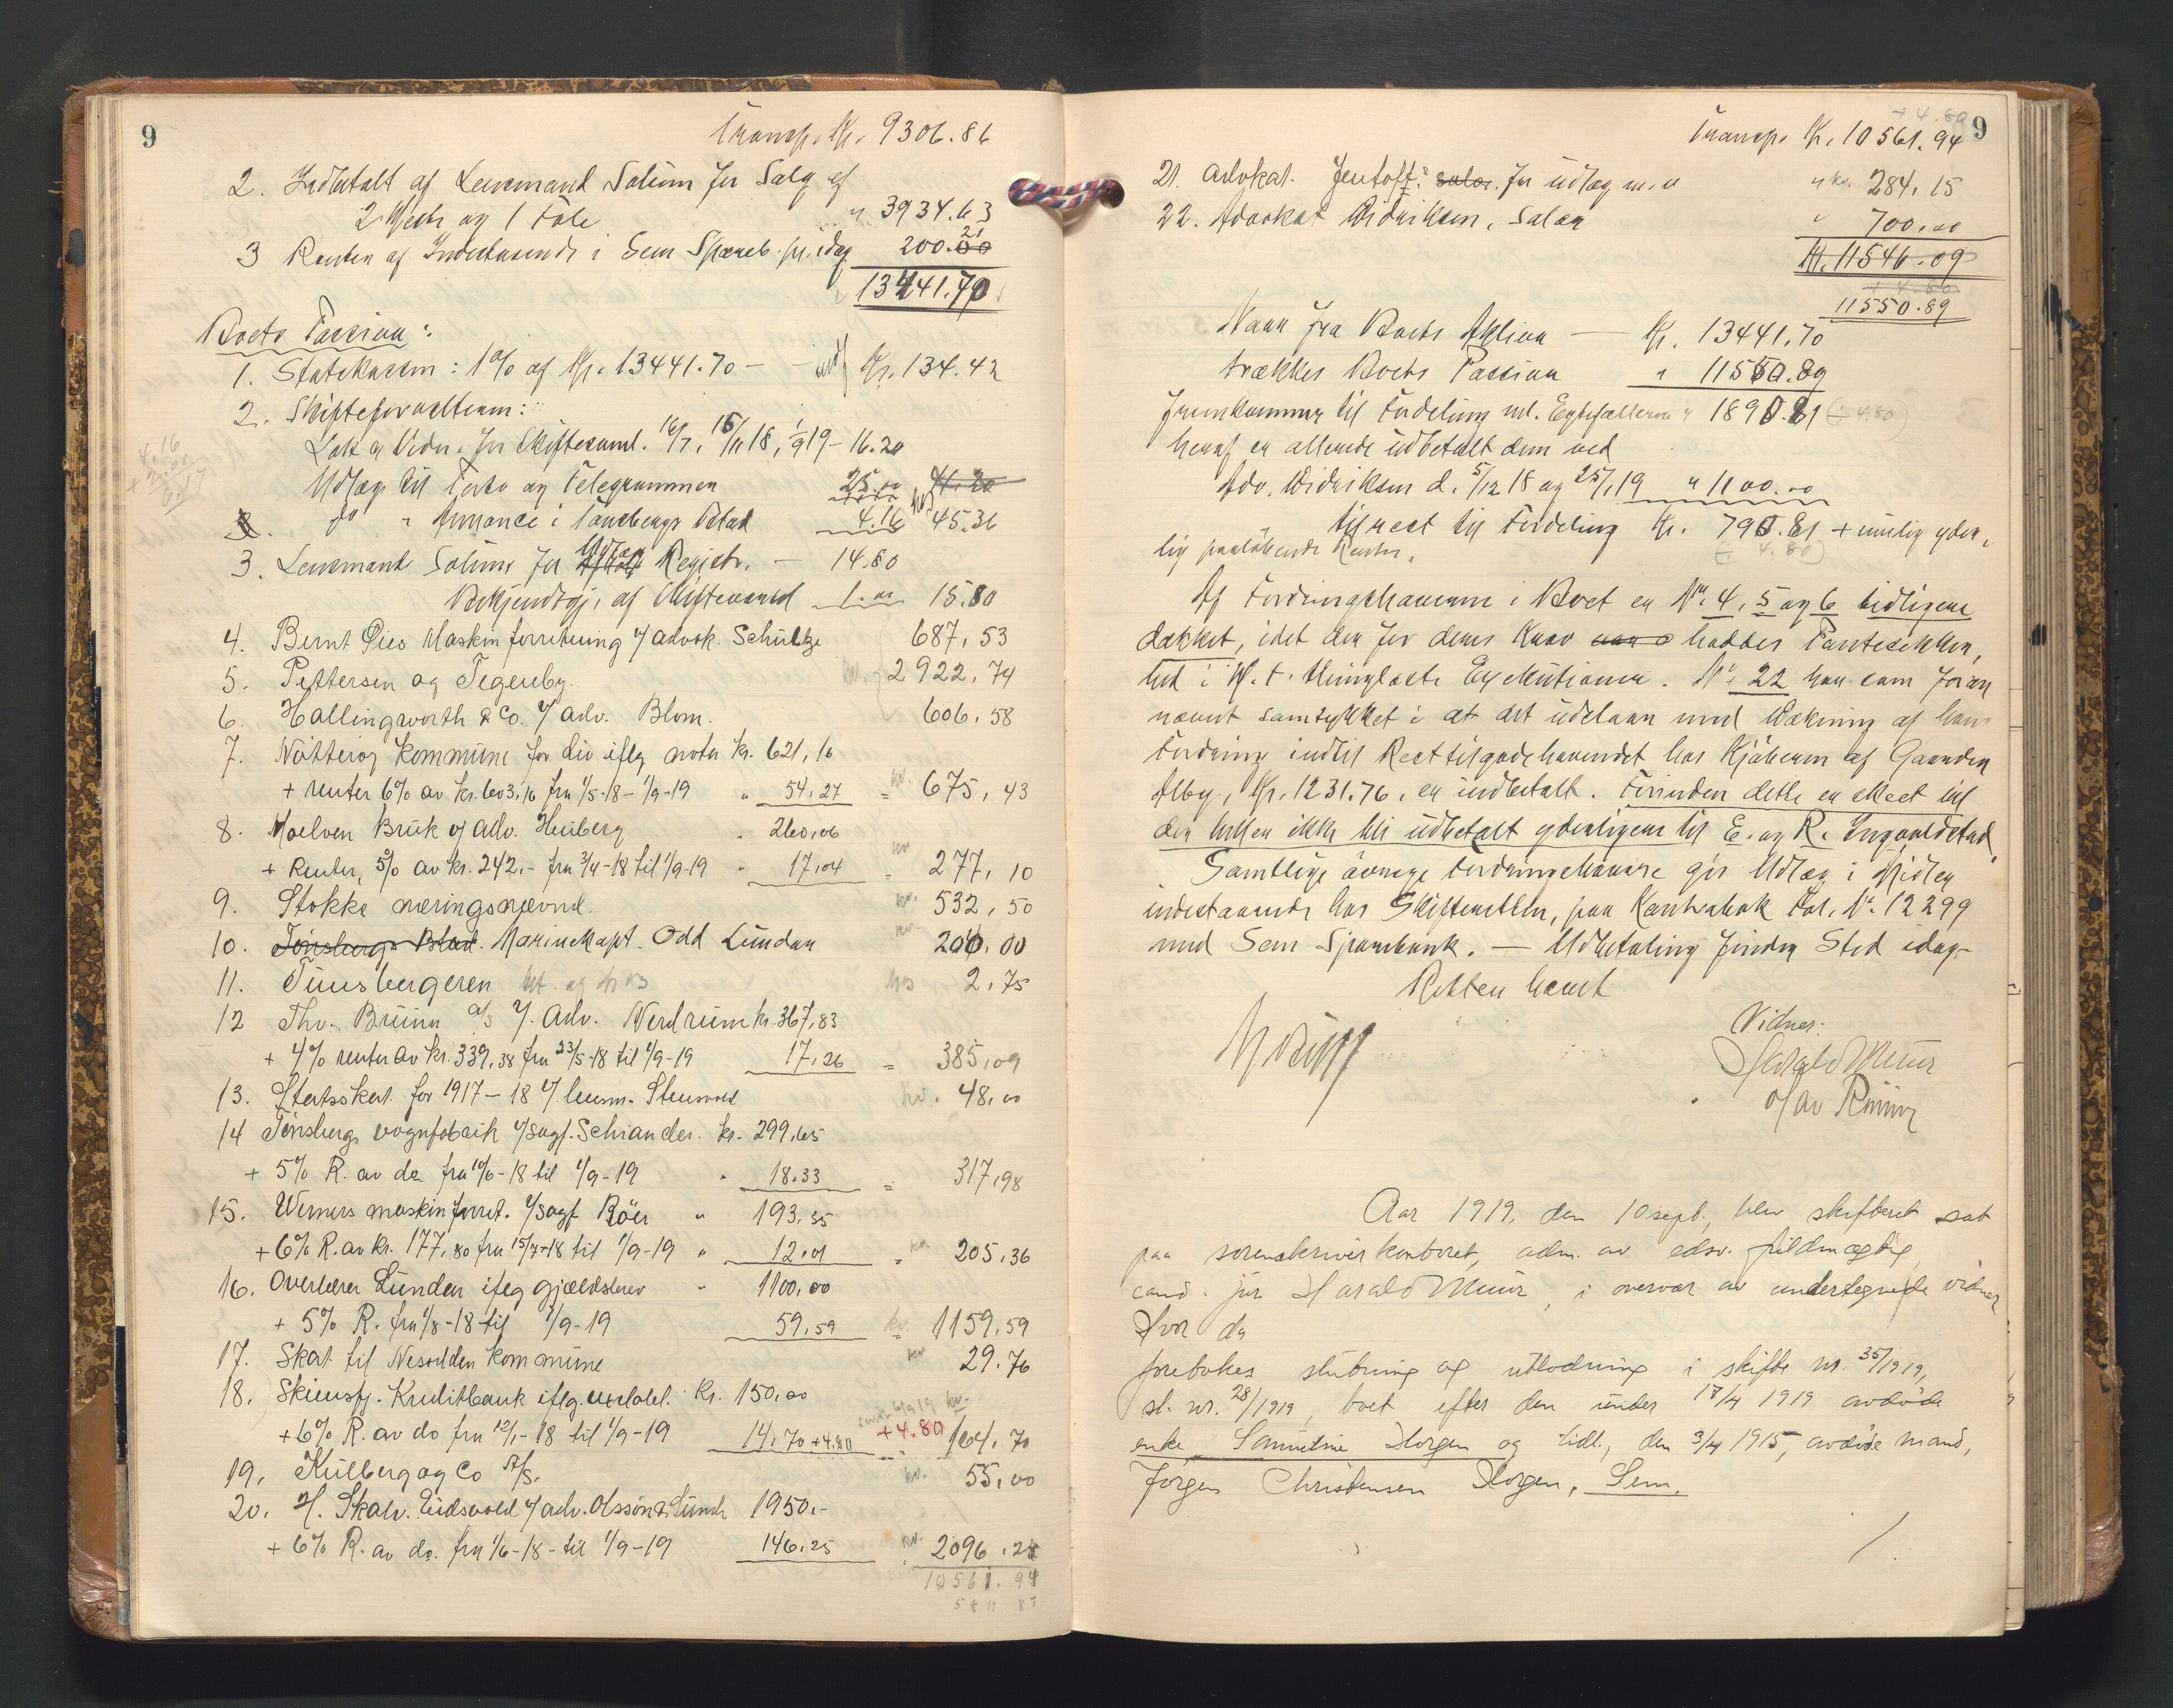 9
Transp. Kr. 9306.86
2. Indbetalt af Lensmand Solum for Salg af
2 Heste og 1 Føle " 3934.63
3 Renten af Indestaaende i Sem Spareb. pr. idag 200.21
13441.70
Boets Passiva:
1. Statskassen: 1% af Kr. 13441.70 — Kr. 134.42
2. Skifteforvalteren:
for Skiftesaml. 16/7, 15/11 18, 1/9 19 – 16.20
Udlæg til Porto og Telegrammer 25.00 41.20
do " Annonce i Tønsbergs Blad 4.16 45.36
4.16
3. Lensmand Solum for Udlæg Registr. — 14.80
Bekjendtgj. af Skiftevarsel 1.00 15.80
4. Bernt Øies Maskinforretning v/ advok. Schultze 687,53
5. Pettersen og Tegenby. 2922,74
6. Hallingworth & Co. v/ adv. Blom. 606,58
7. Nøtterøy kommune for div iflg nota kr. 621,16
+ renter 6% av kr. 603,16 fra 1/5-18 - 1/9-19 " 54,27 = 675,43
8. Moelven Bruk v/ adv. Heiberg " 260,06
+ Renter, 5% av kr. 242.- fra 3/4-18 til 1/9-19 " 17,04 = 277,10
9. Stokke næringsnævnd. 532,50
10. Tønsbergs Blad. Marinekapt. Odd Lunden 200,00
11. Tunsbergeren 2,75
12 Thv. Bruun A/S v/. adv. Nerdrum kr. 367,83
+ 4% renter av kr. 339,38 fra 23/5-18 til 1/9-19 17,26 = 385,09
13. Statsskat for 1917–18 v/. lensm. Stensvold 48,00
14 Tønsbergs vognfabrik v/sagf. Schiander. kr. 299,65
+ 5% R. av do fra 10/6-18 til 1/9-19 " 18.33 = 317,98
15. Werners maskinforret. v/sagf Röer " 193,35
+ 6% R. av kr. 177,80 fra 15/7-18 til 1/9-19 " 12,01 = 205,36
16. Overlærer Lunden iflg gjældsbrev " 1100,00
+ 5% R. fra 1/8-18 til 1/9-19 59,59 1159,59
17. Skat til Nesodden kommune 29.76
18. Skiensfj. Kreditbank iflg. Kr. 150,00
+6% R. av do fra 12/1-18 til 1/9-19 14,70 +4.80 +4.80 164,70
19. Kullberg og Co A/S. 55,00
20. H. Skalv. Eidsvold v/ adv. Olsson & Lunde 1950.-
+ 6% R. av do. fra 1/6-18 - til 1/9-19 146,25 2096,25
10561.94
5811 87
9
+ 4.80
Transp. Kr. 10561.94
21. Advokat Jentoft: salær. for udlæg m.v " 284,15
22. Advokat Didriksen, Salær " 700,00
Kr. 11546.09
+ 4.80
11550.89
Naar fra Boets Aktiva — Kr. 13441.70
trækkes Boets Passiva " 11550.89
fremkommer til Fordeling ml. Egtefællerne " 1890.81 (÷ 4.80)
heraf er allerede udbetalt dem ved
Adv. Didriksen d. 5/12 18 og 25/1 19 " 1100.00
til rest til Fordeling Kr. 790.81 + mulig yder-
lig paaløbende Renter. (÷ 4.80)
Af Fordringshaverne i Boet er No. 4, 5 og 6 tidligere
dækket, idet der for deres Krav havdes Pantesikker-
het i H. t. thinglæste Exekutioner. No. 22 har som foran
nævnt samtykket i at det udstaar med Dækning af hans
Fordring indtil Resttilgodehavendet hos Kjøberen af Gaarden
Alby, Kr. 1231.76, er indbetalt. Forinden dette er skeet vil
der heller ikke bli udbetalt yderligere til E. og R. Ingvaldstad.
Samtlige øvrige Fordringshavere gis Udlæg i Midler
indestaaende hos Skifteretten, paa Kontrabok Fol. No. 12299
med Sem Sparebank. — Udbetaling finder Sted idag.
Retten hævet
Vidner:
Harald Muur
Olav
Aar 1919, den 10 sept., blev skifteret sat
paa sorenskriverkontoret, adm. av edsv. fuldmægtig,
cand. jur Harald Muur, i overvær av undertegnede vidner
Hvor da
foretokes slutning og utlodning i skifte nr. 35/1919,
sl. nr. 28/1919, boet efter den under 17/4 1919 avdøde
enke Horgen og tidl., den 3/4 1915, avdøde mand,
Jørgen Christensen Horgen, Sem.